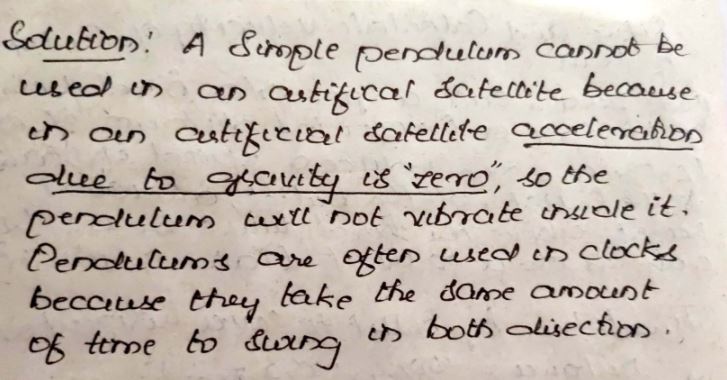 Solution: A Simple pendulum cannot be
used in an artifical satellite because
in an artificial satellite acceleration
due to gravity is "zero", so the
pendulum will not vibrate inside it.
Pendulums are often used in clocks
because they take the same amount
of time to swing in both direction.